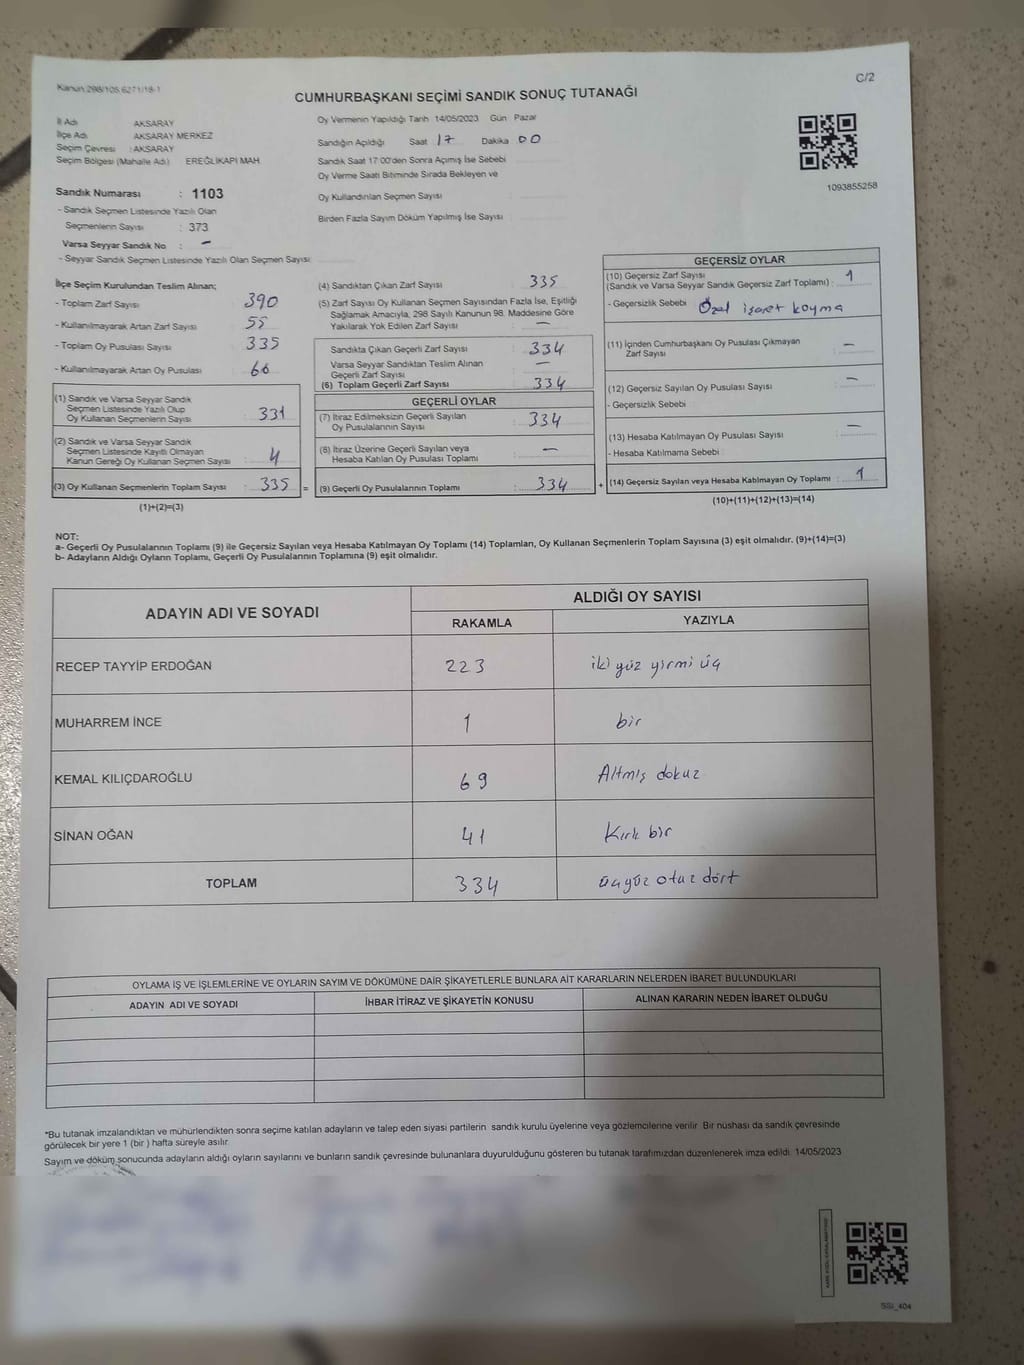 Kanun 298/105,6271/18-1
C/2
CUMHURBAŞKANI SEÇİMİ SANDIK SONUÇ TUTANAĞI
İl Adı AKSARAY
İlçe Adı AKSARAY MERKEZ
Seçim Çevresi : AKSARAY
Seçim Bölgesi (Mahalle Adı) EREĞLİKAPI MAH.
Sandık Numarası : 1103
- Sandık Seçmen Listesinde Yazılı Olan
Seçmenlerin Sayısı : 373
Varsa Seyyar Sandık No : -
- Seyyar Sandık Seçmen Listesinde Yazılı Olan Seçmen Sayısı:
Oy Vermenin Yapıldığı Tarih 14/05/2023 Gün Pazar
Sandığın Açıldığı Saat 17 Dakika 00
Sandık Saat 17 00'den Sonra Açımış İse Sebebi
Oy Verme Saati Bitiminde Sırada Bekleyen ve
Oy Kullandırılan Seçmen Sayısı
Birden Fazla Sayım Döküm Yapılmış İse Sayısı
1093855258
İlçe Seçim Kurulundan Teslim Alınan;
- Toplam Zarf Sayısı 390
- Kullanılmayarak Artan Zarf Sayısı 55
- Toplam Oy Pusulası Sayısı 335
- Kullanılmayarak Artan Oy Pusulası 66
(1) Sandık ve Varsa Seyyar Sandık
Seçmen Listesinde Yazılı Olup
Oy Kullanan Seçmenlerin Sayısı 331
(2) Sandık ve Varsa Seyyar Sandık
Seçmen Listesinde Kayıtlı Olmayan
Kanun Gereği Oy Kullanan Seçmen Sayısı : 4
(3) Oy Kullanan Seçmenlerin Toplam Sayısı : 335 =
(1)+(2)=(3)
(4) Sandıktan Çıkan Zarf Sayısı 335
(5) Zarf Sayısı Oy Kullanan Seçmen Sayısından Fazla İse, Eşitliği
Sağlamak Amacıyla, 298 Sayılı Kanunun 98. Maddesine Göre
Yakılarak Yok Edilen Zarf Sayısı -
Sandıkta Çıkan Geçerli Zarf Sayısı : 334
Varsa Seyyar Sandıktan Teslim Alınan
Geçerli Zarf Sayısı -
(6) Toplam Geçerli Zarf Sayısı 334
GEÇERLİ OYLAR
(7) İtiraz Edilmeksizin Geçerli Sayılan
Oy Pusulalarının Sayısı 334
(8) İtiraz Üzerine Geçerli Sayılan veya
Hesaba Katılan Oy Pusulası Toplamı : -
(9) Geçerli Oy Pusulalarının Toplamı : 334 +
GEÇERSİZ OYLAR
(10) Geçersiz Zarf Sayısı
(Sandık ve Varsa Seyyar Sandık Geçersiz Zarf Toplamı) : 1
- Geçersizlik Sebebi Özel işaret koyma
(11) İçinden Cumhurbaşkanı Oy Pusulası Çıkmayan
Zarf Sayısı -
(12) Geçersiz Sayılan Oy Pusulası Sayısı -
- Geçersizlik Sebebi
(13) Hesaba Katılmayan Oy Pusulası Sayısı -
- Hesaba Katılmama Sebebi
(14) Geçersiz Sayılan veya Hesaba Katılmayan Oy Toplamı : 1
(10)+(11)+(12)+(13)=(14)
NOT:
a- Geçerli Oy Pusulalarının Toplamı (9) ile Geçersiz Sayılan veya Hesaba Katılmayan Oy Toplamı (14) Toplamları, Oy Kullanan Seçmenlerin Toplam Sayısına (3) eşit olmalıdır. (9)+(14)=(3)
b- Adayların Aldığı Oyların Toplamı, Geçerli Oy Pusulalarının Toplamına (9) eşit olmalıdır.
ADAYIN ADI VE SOYADI
ALDIĞI OY SAYISI
RAKAMLA YAZIYLA
RECEP TAYYİP ERDOĞAN 223 iki yüz yirmi üç
MUHARREM İNCE 1 bir
KEMAL KILIÇDAROĞLU 69 Altmış dokuz
SİNAN OĞAN 41 Kırk bir
TOPLAM 334 üçyüz otuz dört
OYLAMA İŞ VE İŞLEMLERİNE VE OYLARIN SAYIM VE DÖKÜMÜNE DAİR ŞİKAYETLERLE BUNLARA AİT KARARLARIN NELERDEN İBARET BULUNDUKLARI
ADAYIN ADI VE SOYADI İHBAR İTİRAZ VE ŞİKAYETİN KONUSU ALINAN KARARIN NEDEN İBARET OLDUĞU
*Bu tutanak imzalandıktan ve mühürlendikten sonra seçime katılan adayların ve talep eden siyasi partilerin sandık kurulu üyelerine veya gözlemcilerine verilir. Bir nüshası da sandık çevresinde
görülecek bir yere 1 (bir ) hafta süreyle asılır.
Sayım ve döküm sonucunda adayların aldığı oyların sayılarını ve bunların sandık çevresinde bulunanlara duyurulduğunu gösteren bu tutanak tarafımızdan düzenlenerek imza edildi. 14/05/2023
SSI_404